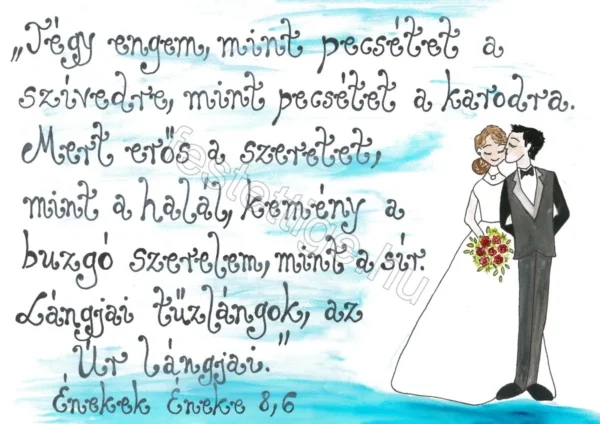 „Tégy engem, mint pecsétet a
szívedre, mint pecsétet a karodra.
Mert erős a szeretet,
mint a halál, kemény a
buzgó szerelem, mint a sír.
Lángjai tűzlángok, az
Úr lángjai.”
Énekek Éneke 8,6
festettige.hu